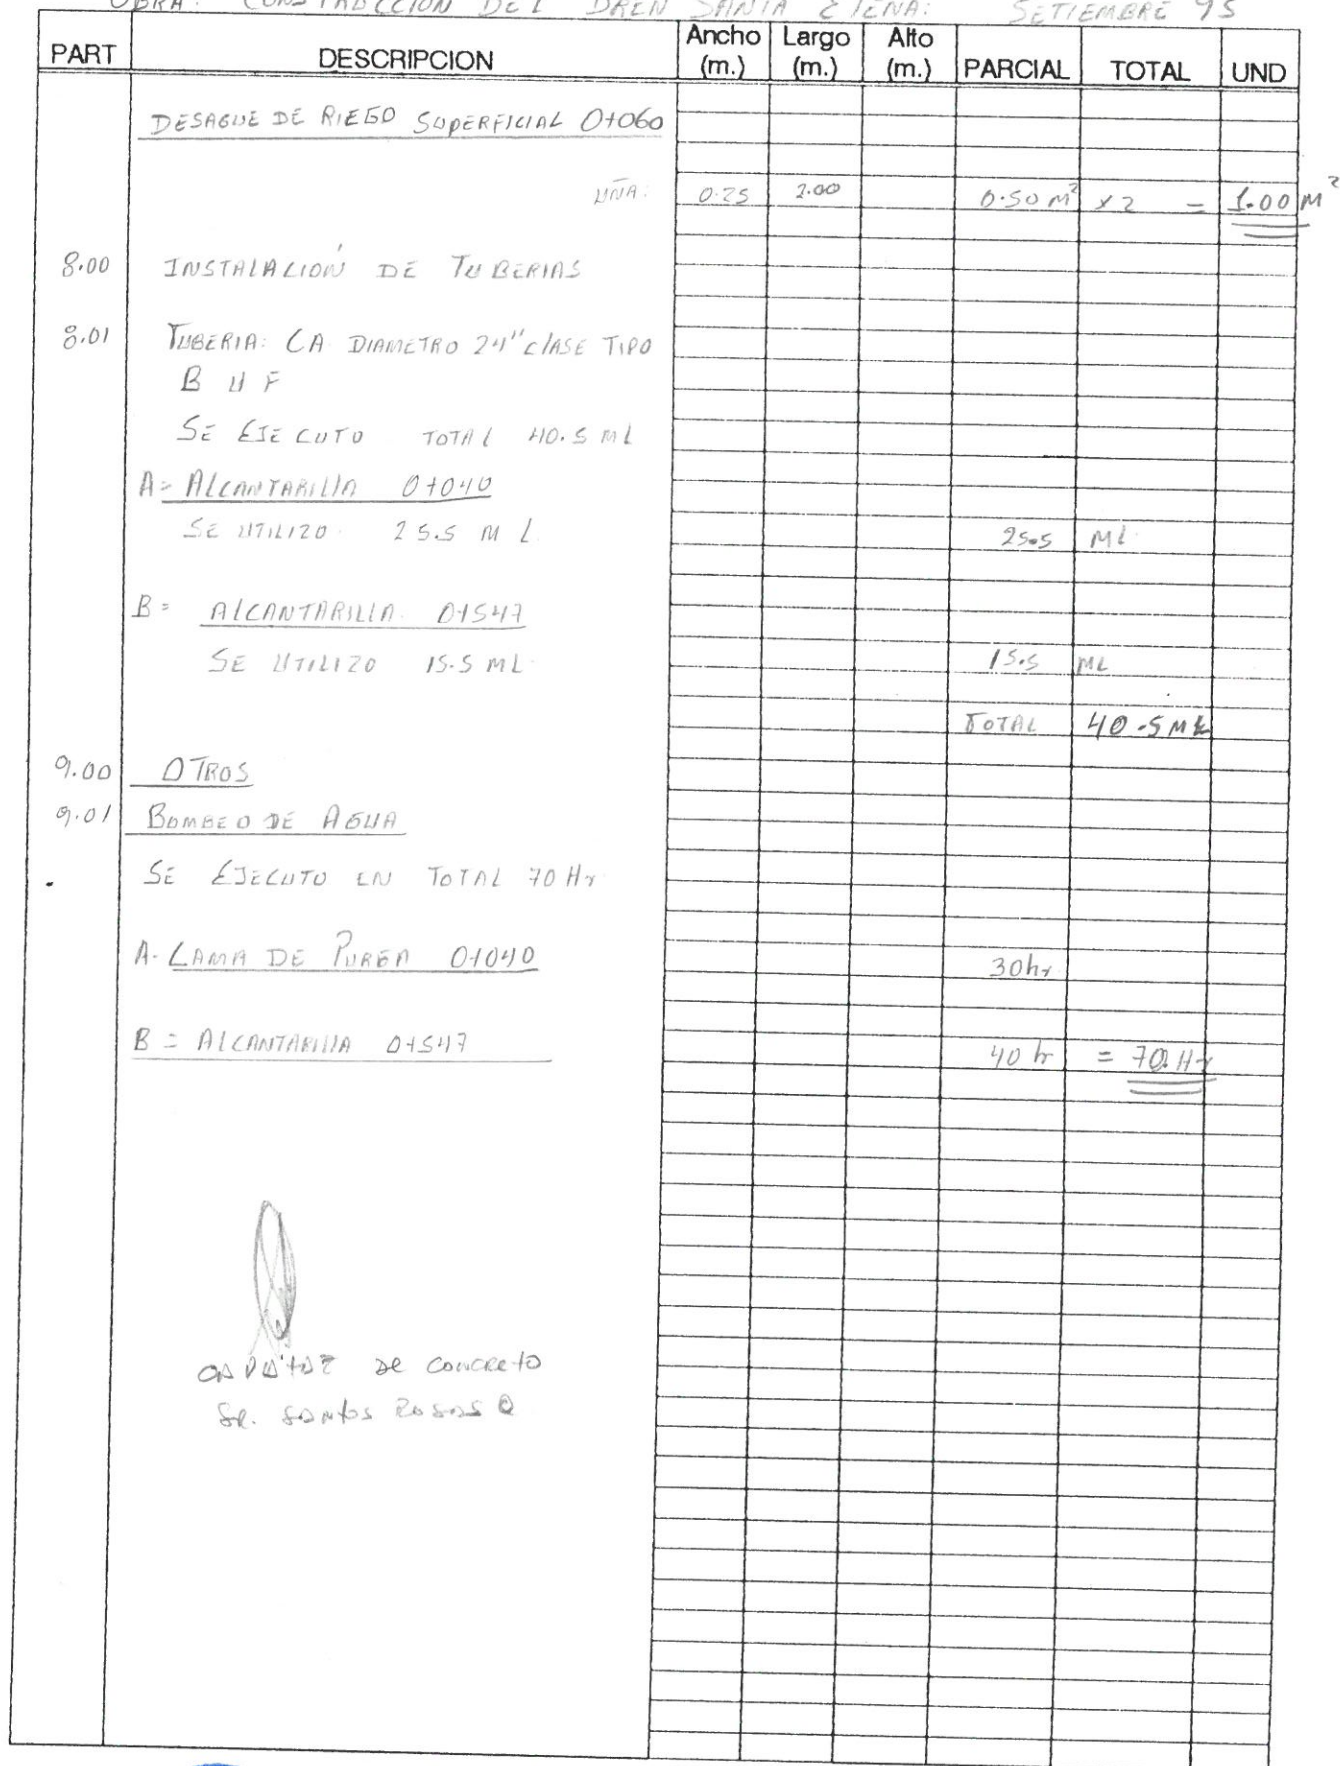 OBRA: CONSTRUCCION DEL DREN SANTA ELENA: SETIEMBRE 95
PART DESCRIPCION Ancho (m.) Largo (m.) Alto (m.) PARCIAL TOTAL UND
DESAGUE DE RIEGO SUPERFICIAL 0+060
UÑA: 0.25 2.00 0.50 M² x 2 = 1.00 M²
8.00 INSTALACIÓN DE TUBERIAS
8.01 TUBERIA: CA DIAMETRO 24" CLASE TIPO
B U F
SE EJECUTO TOTAL 40.5 ML
A= ALCANTARILLA 0+040
SE UTILIZO 25.5 ML 25.5 ML
B= ALCANTARILLA 0+547
SE UTILIZO 15.5 ML 15.5 ML
TOTAL 40.5 ML
9.00 OTROS
9.01 BOMBEO DE AGUA
SE EJECUTO EN TOTAL 70 Hr
A- LAMA DE 0+040 30hr
B= ALCANTARILLA 0+547 40 hr = 70.Hr
CAPATAZ DE CONCRETO
SR. SANTOS ROSAS Q